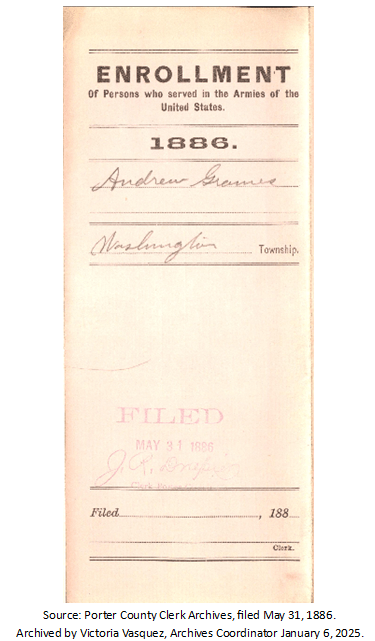 ENROLLMENT
Of Persons who served in the Armies of the
United States.
1886.
Andrew
Washington Township.
FILED
MAY 31 1886
J. R.
Clerk Porter
Filed, 188
Clerk.
Source: Porter County Clerk Archives, filed May 31, 1886.
Archived by Victoria Vasquez, Archives Coordinator January 6, 2025.